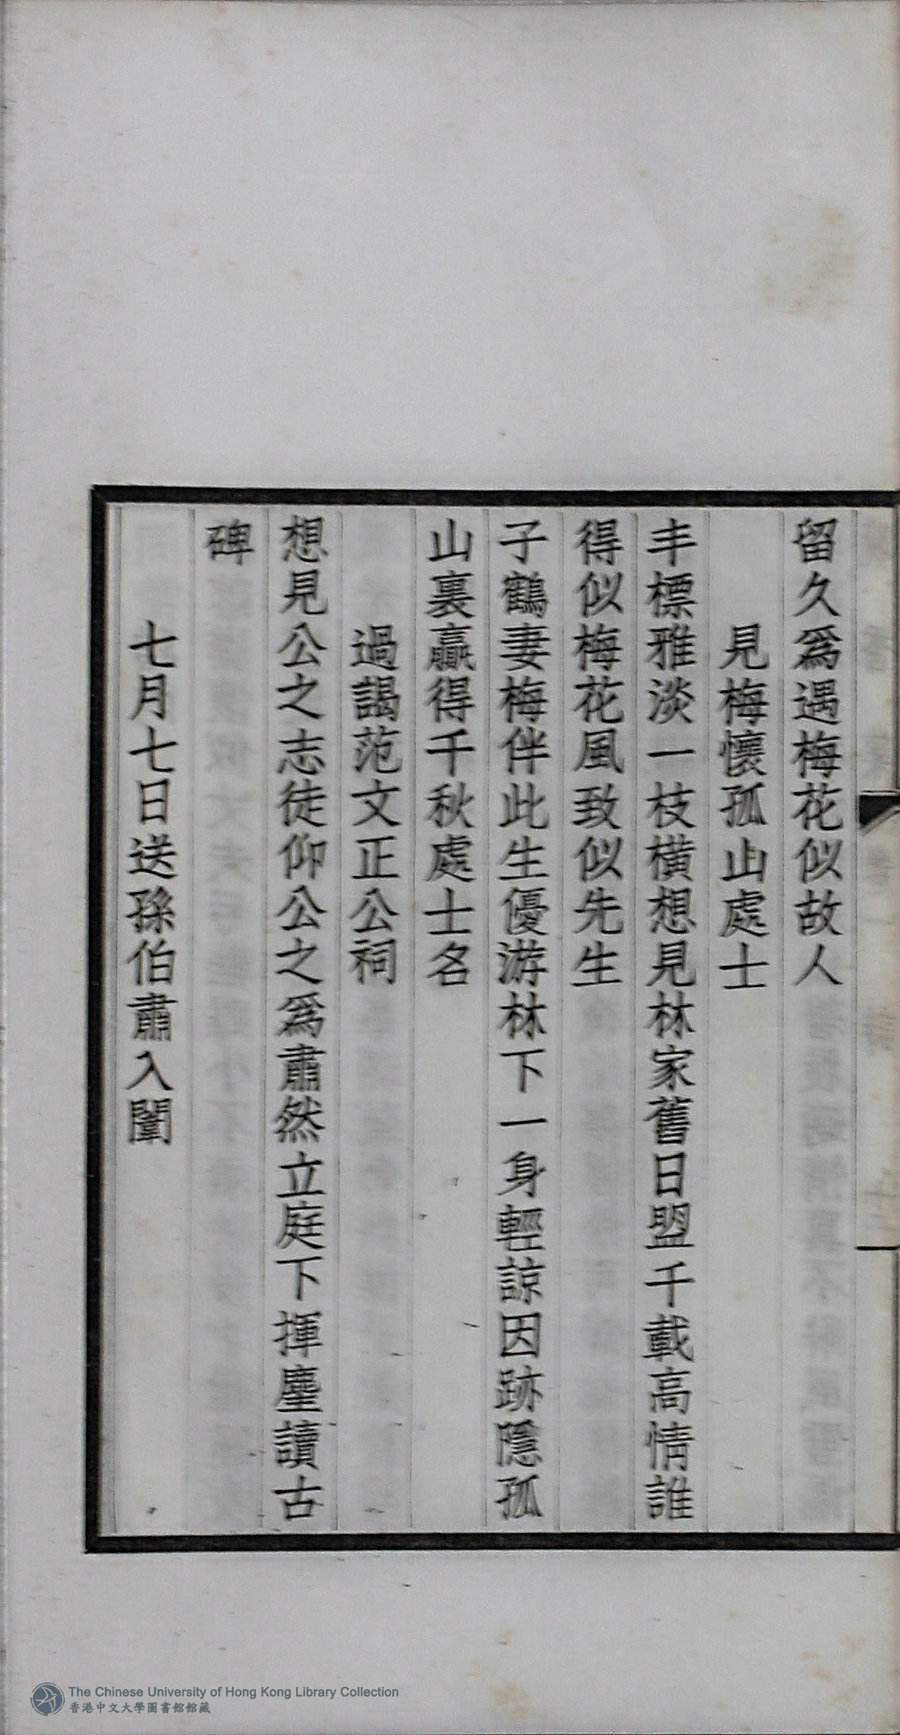 留久爲遇梅花似故人
見梅懷孤山處士
丰標雅淡一枝橫想見林家舊日盟千載高情誰
得似梅花風致似先生
子鶴妻梅伴此生優游林下一身輕諒因跡隱孤
山裏贏得千秋處士名
過謁范文正公祠
想見公之志徒仰公之爲肅然立庭下揮塵讀古
碑
七月七日送孫伯肅入闈
The Chinese University of Hong Kong Library Collection
香港中文大學圖書館館藏